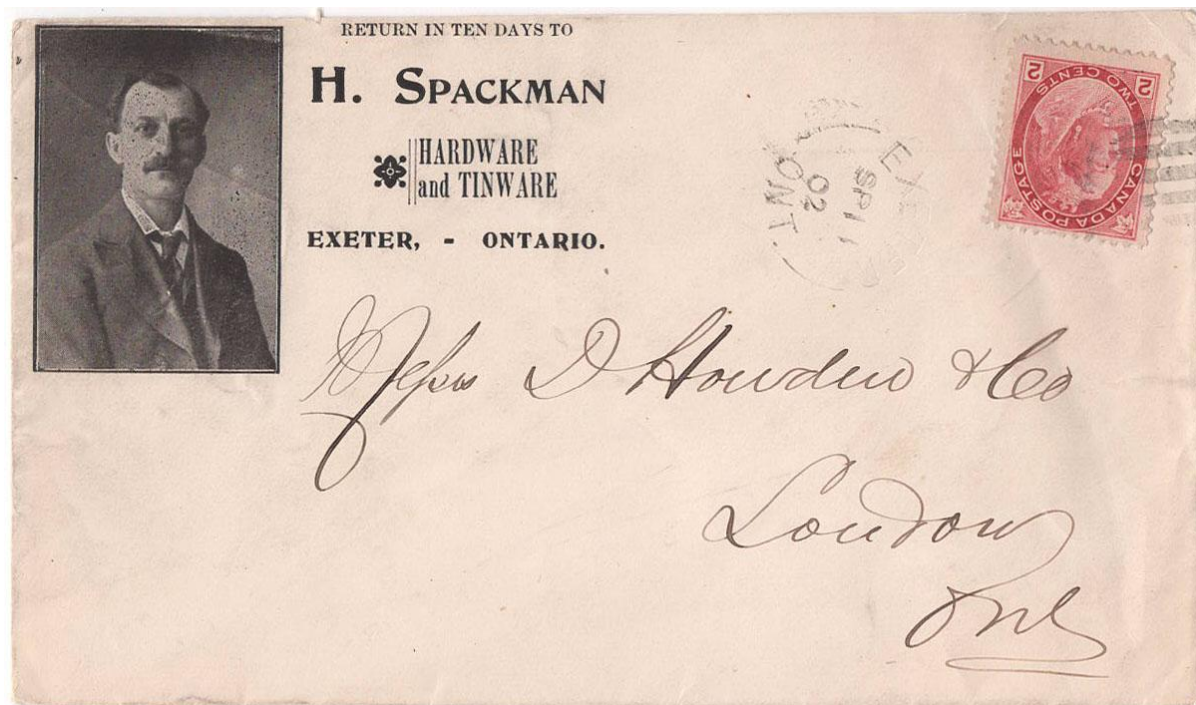 RETURN IN TEN DAYS TO
H. SPACKMAN
HARDWARE
and TINWARE
EXETER, - ONTARIO.
EXE
SP 1
02
ONT
2 2
TWO CENTS
CANADA POSTAGE
Messrs D Howden & Co
London
Ont